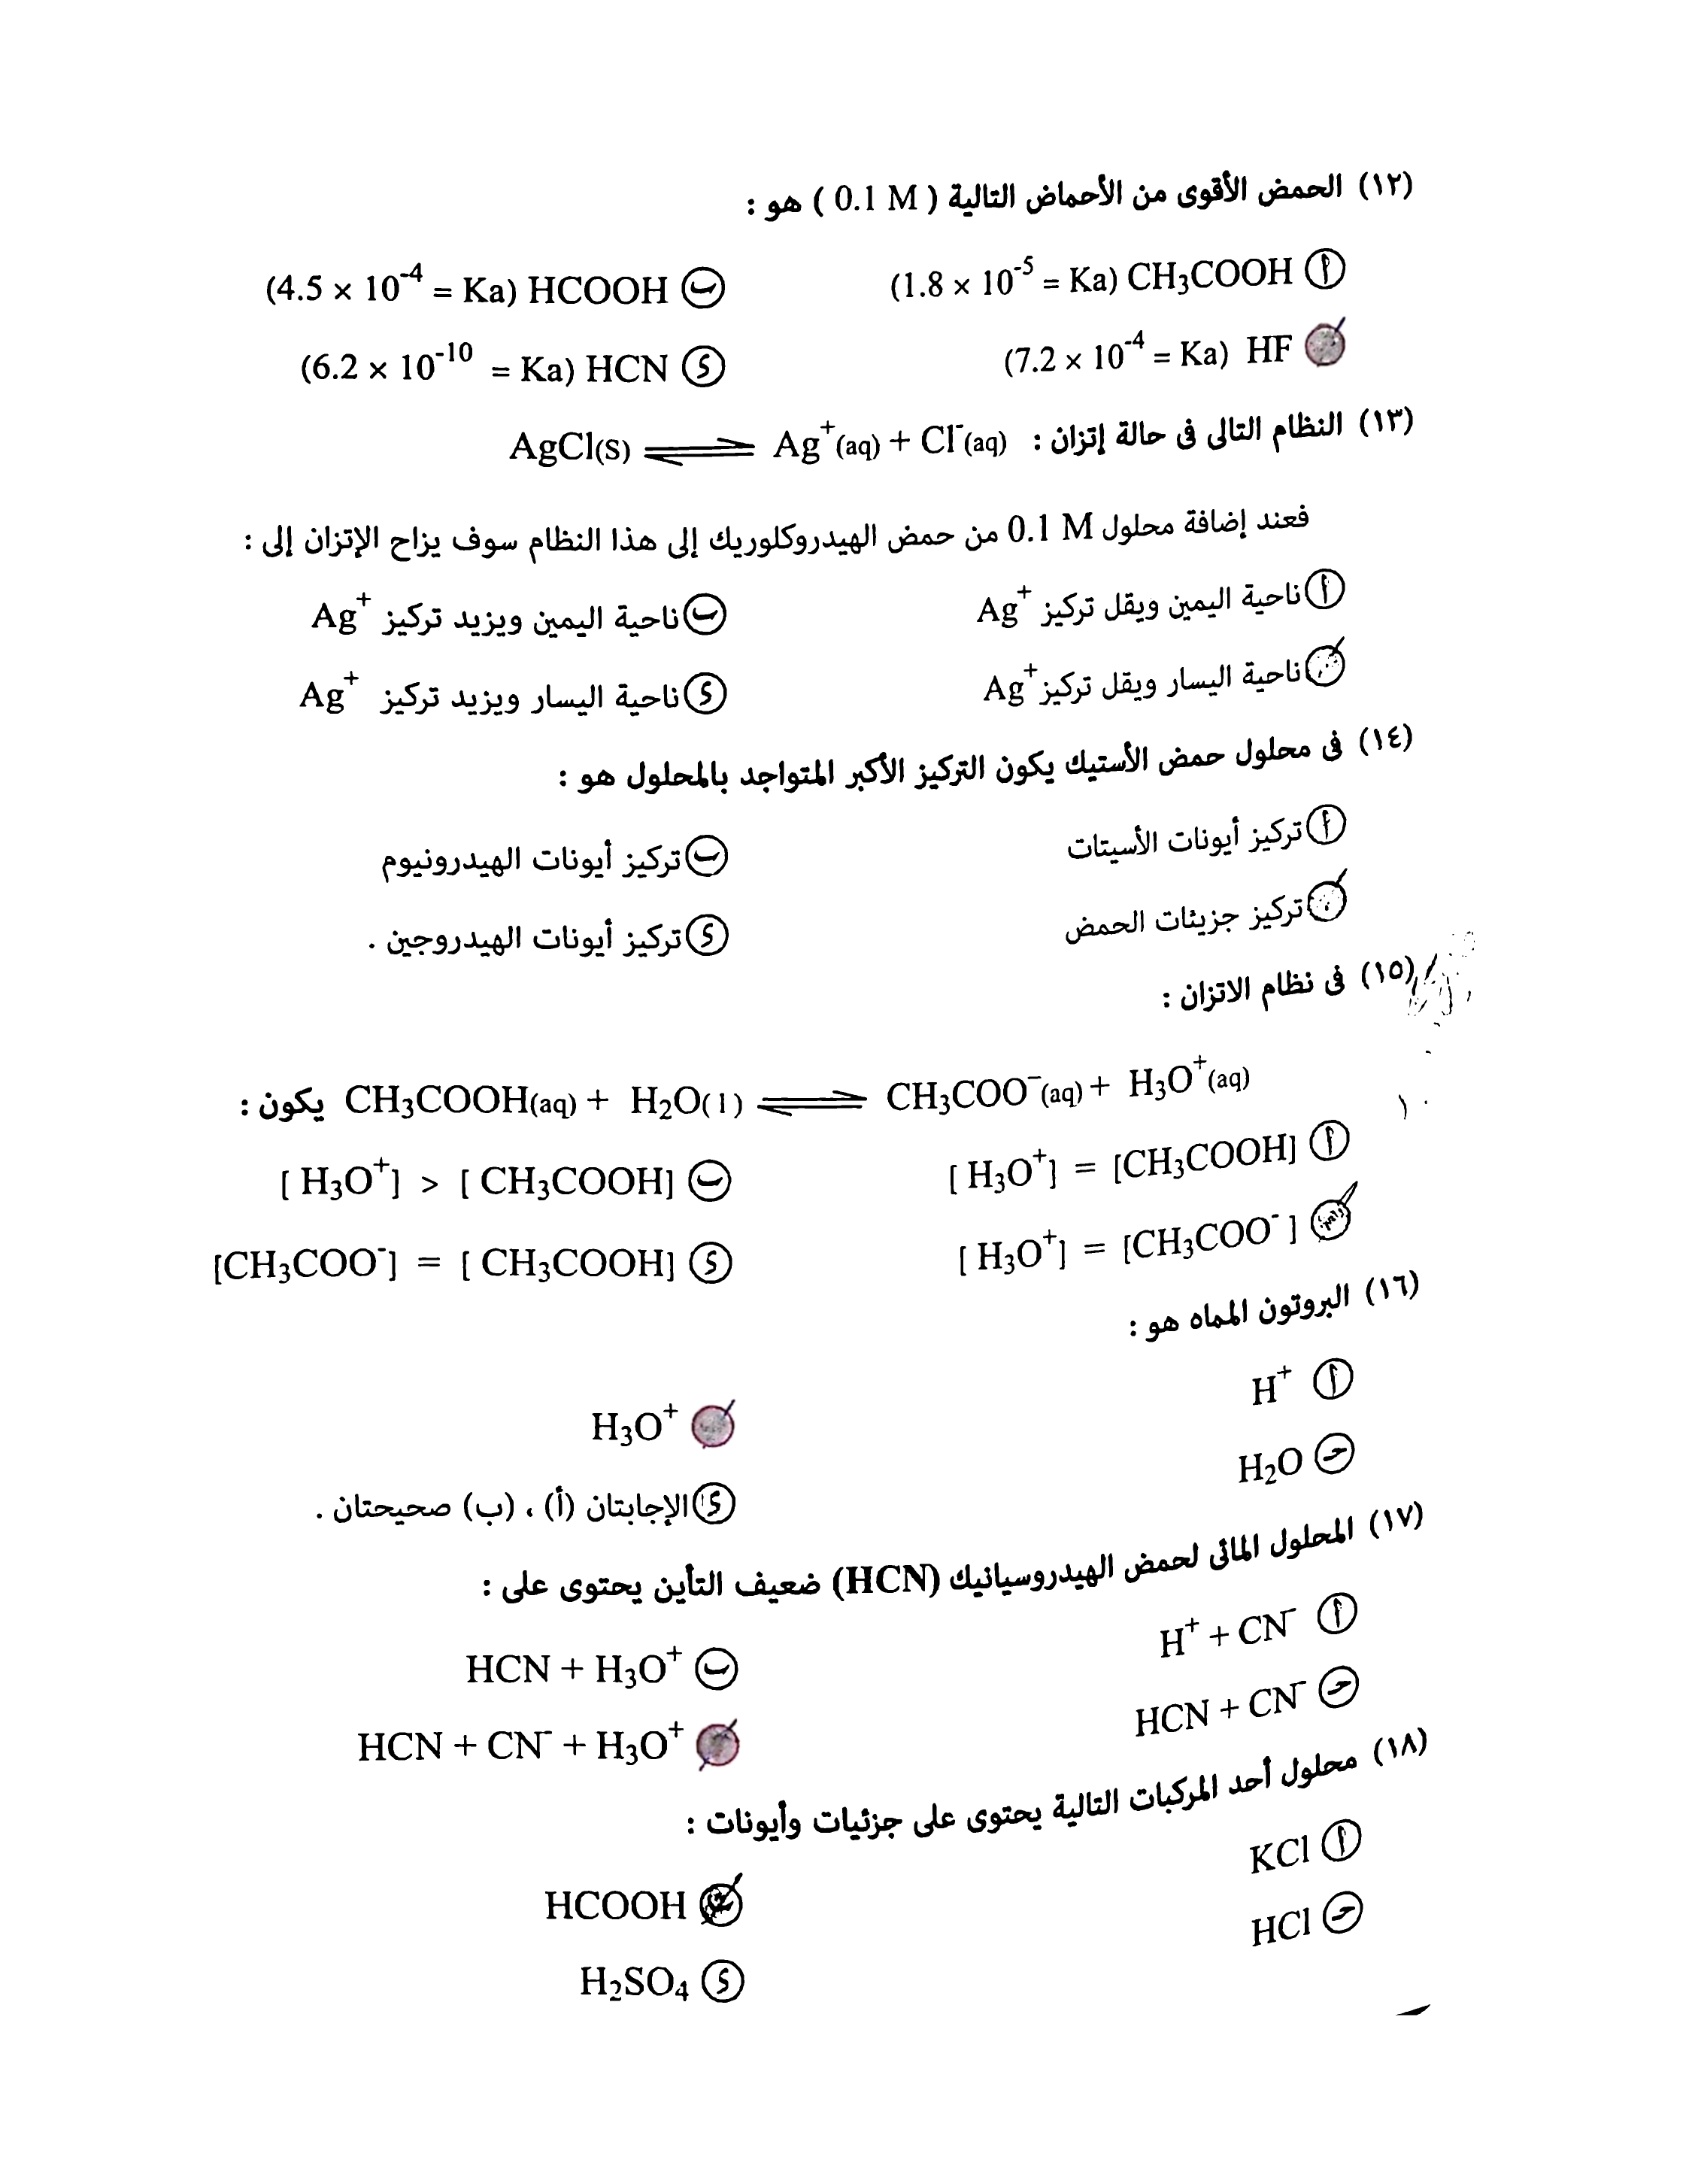 (١٢) الحمض الأقوى من الأحماض التالية ( 0.1 M ) هو :
أ CH₃COOH (1.8 × 10⁻⁵ = Ka)
ب HCOOH (4.5 × 10⁻⁴ = Ka)
HF (7.2 × 10⁻⁴ = Ka)
د HCN (6.2 × 10⁻¹⁰ = Ka)
(١٣) النظام التالى فى حالة إتزان : AgCl(S) ⇌ Ag⁺(aq) + Cl⁻(aq)
فعند إضافة محلول 0.1 M من حمض الهيدروكلوريك إلى هذا النظام سوف يزاح الإتزان إلى :
أ ناحية اليمين ويقل تركيز Ag⁺
ب ناحية اليمين ويزيد تركيز Ag⁺
ناحية اليسار ويقل تركيز Ag⁺
د ناحية اليسار ويزيد تركيز Ag⁺
(١٤) فى محلول حمض الأستيك يكون التركيز الأكبر المتواجد بالمحلول هو :
أ تركيز أيونات الأسيتات
ب تركيز أيونات الهيدرونيوم
تركيز جزيئات الحمض
د تركيز أيونات الهيدروجين .
(١٥) فى نظام الاتزان :
CH₃COOH(aq) + H₂O(l) ⇌ CH₃COO⁻(aq) + H₃O⁺(aq) يكون :
أ [ H₃O⁺] = [CH₃COOH]
ب [ H₃O⁺] > [ CH₃COOH]
[ H₃O⁺] = [CH₃COO⁻ ]
د [CH₃COO⁻] = [ CH₃COOH]
(١٦) البروتون المماه هو :
أ H⁺
H₃O⁺
ج H₂O
د الإجابتان (أ) ، (ب) صحيحتان .
(١٧) المحلول المائى لحمض الهيدروسيانيك (HCN) ضعيف التأين يحتوى على :
أ H⁺ + CN⁻
ب HCN + H₃O⁺
ج HCN + CN⁻
HCN + CN⁻ + H₃O⁺
(١٨) محلول أحد المركبات التالية يحتوى على جزئيات وأيونات :
أ KCl
HCOOH
ج HCl
د H₂SO₄